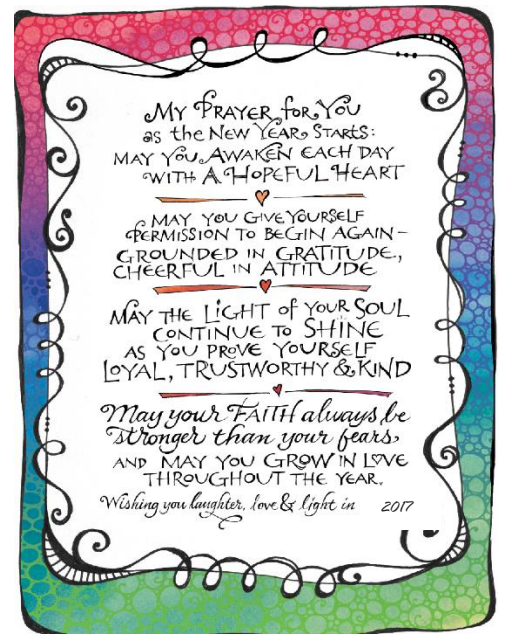 My Prayer for You
as the New Year Starts:
May You Awaken Each Day
with A Hopeful Heart
May you give yourself
permission to begin again–
grounded in gratitude,
cheerful in attitude
May the Light of Your Soul
continue to Shine
as you prove yourself
Loyal, trustworthy & kind
May your FAITH always be
stronger than your fears,
and may you grow in love
throughout the year.
Wishing you laughter, love & light in 2017